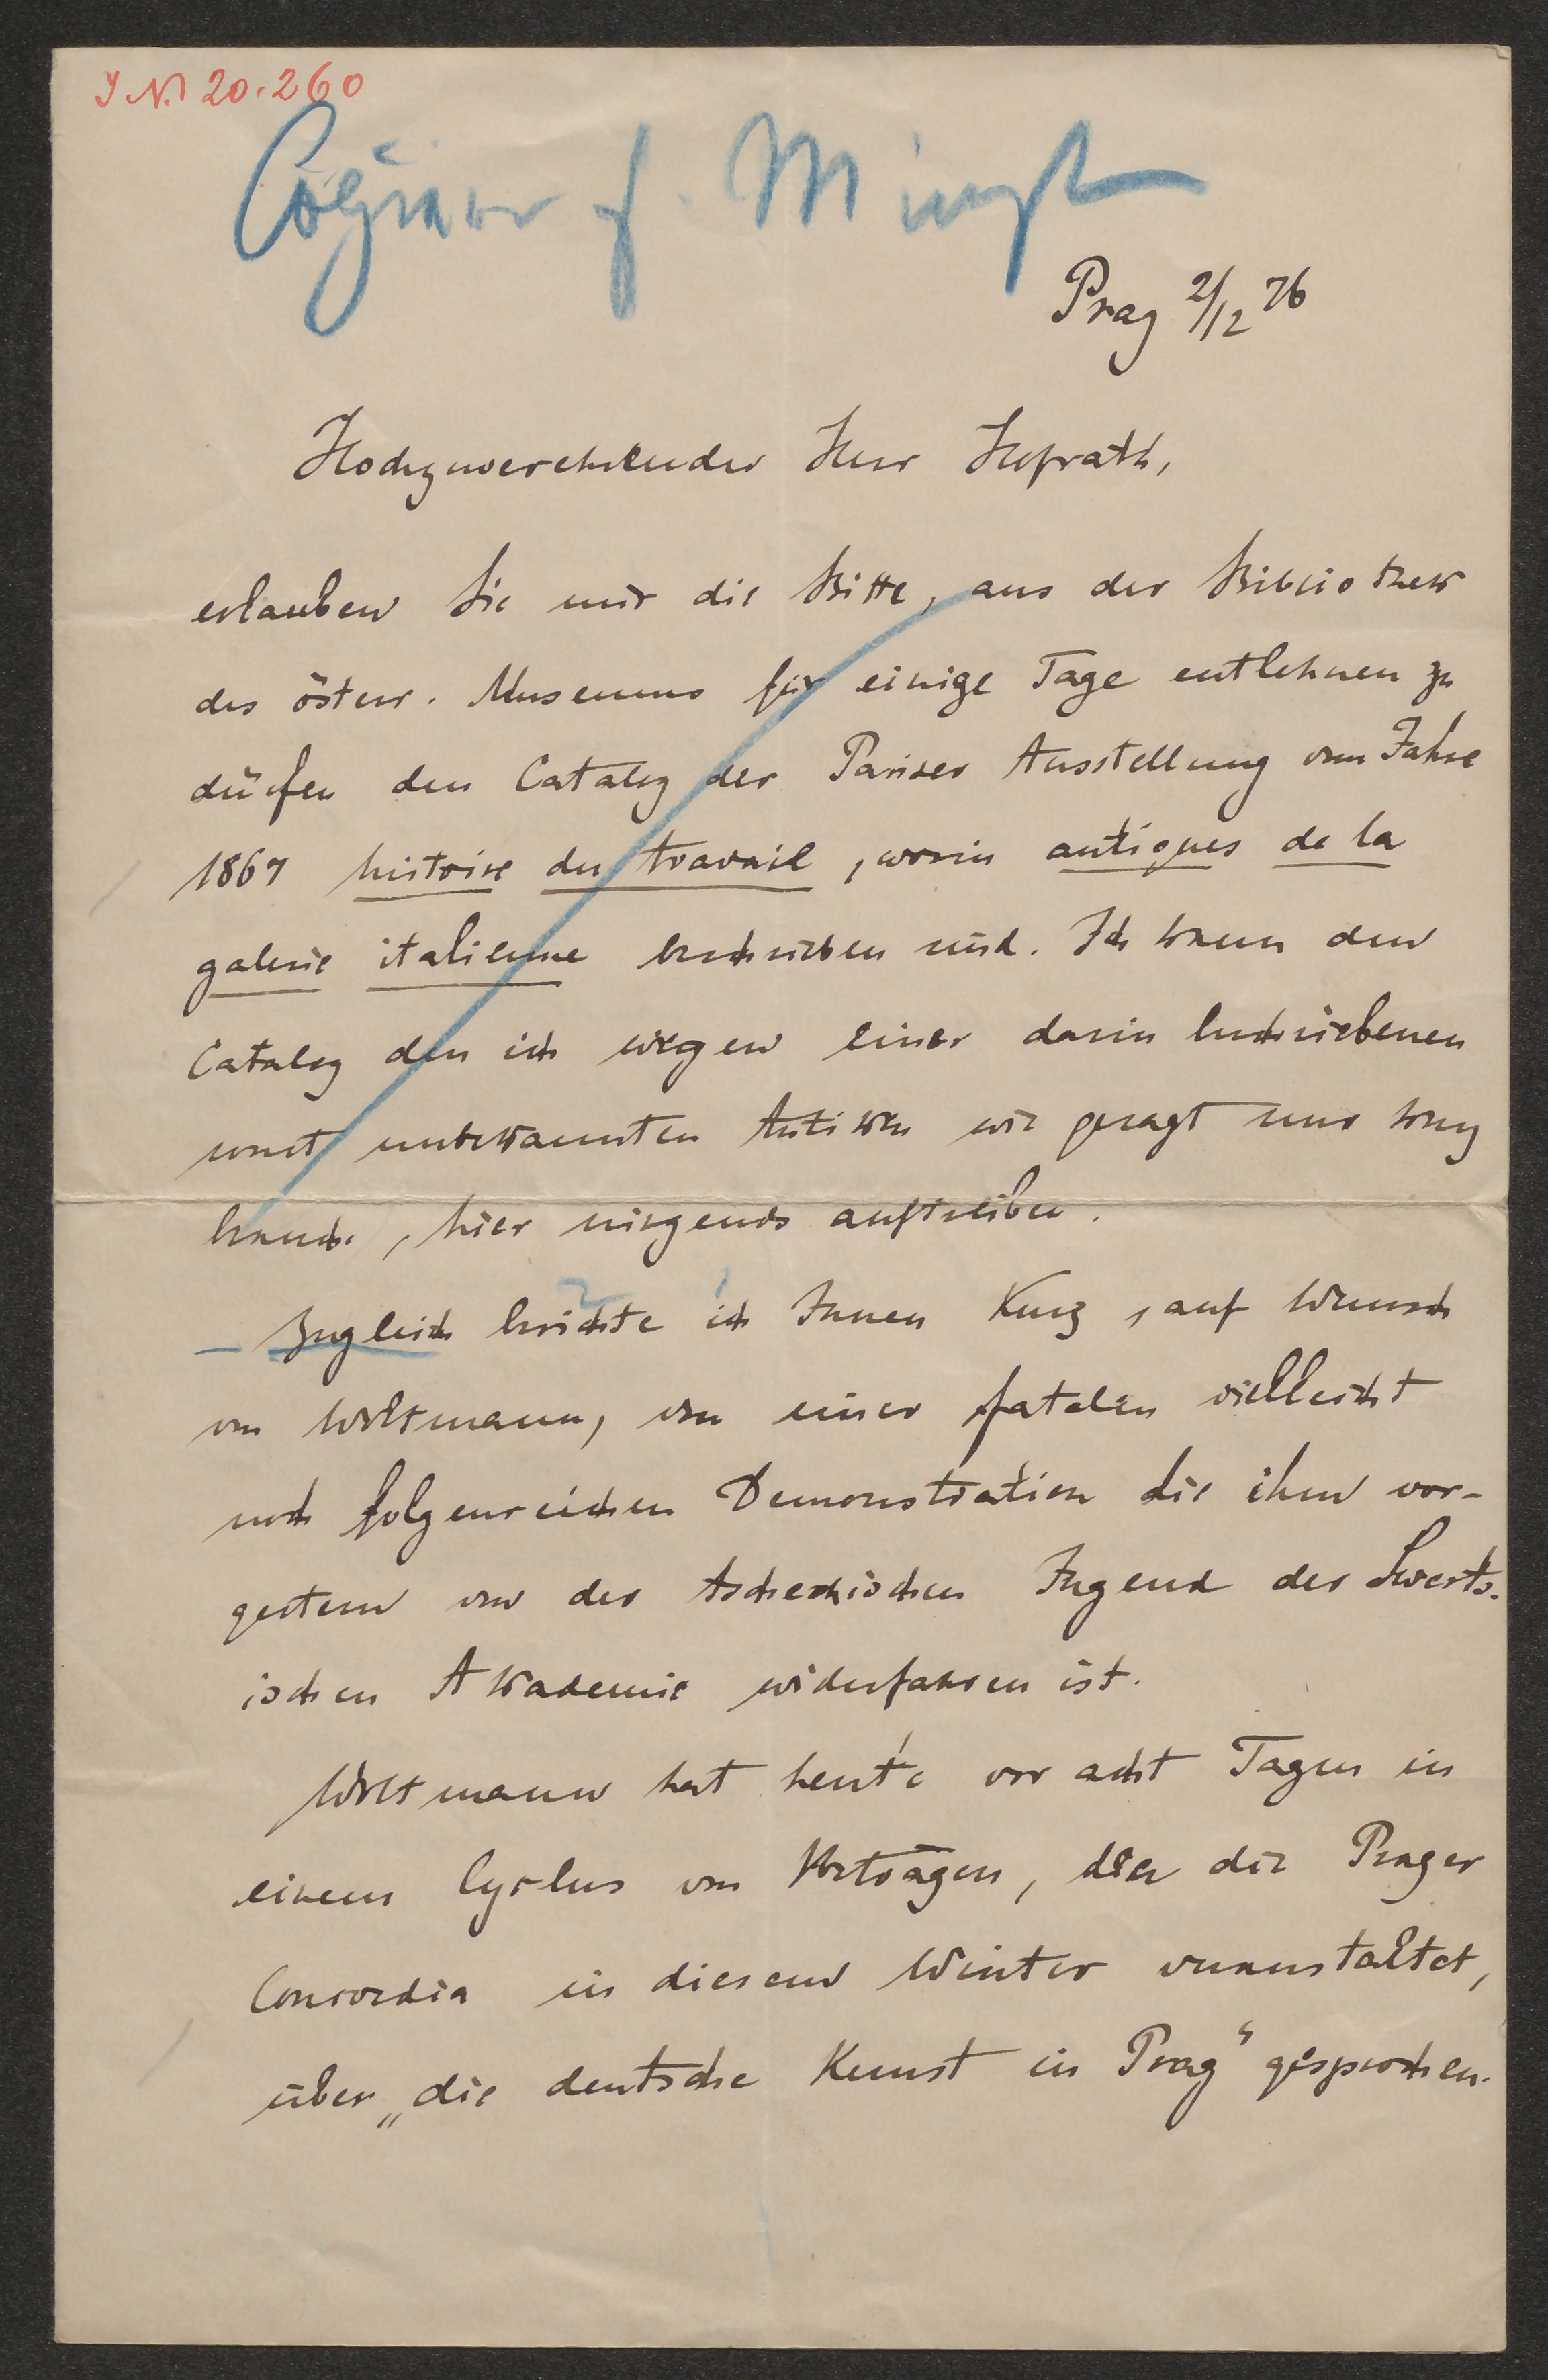 I.N. 20.260
Prag 2/12 76
Hochzuverehrender Herr Hofrath,
erlauben Sie mir die Bitte, aus der Bibliothek
des österr. Museums für einige Tage entlehnen zu
dürfen den Catalog der Pariser Ausstellung vom Jahre
1867 histoire du travail, worin antiques de la
galerie italienne beschrieben sind. Ich kann den
Catalog den ich wegen einer darin beschriebenen
sonst unbekannten Antiken wie gesagt nur kurz
brauche, hier nirgends auftreiben.
– Zugleich berichte ich Ihnen kurz, auf Wunsch
von Woltmann, von einer fatalen vielleicht
noch folgenreichen Demonstration die ihm vor-
gestern von der tschechischen Jugend der hiesigen
ischen Akademie widerfahren ist.
Woltmann hat heute vor acht Tagen in
einem Cyclus von Vorträgen, den die Prager
Concordia in diesem Winter veranstaltet,
über „die deutsche Kunst in Prag“ gesprochen.